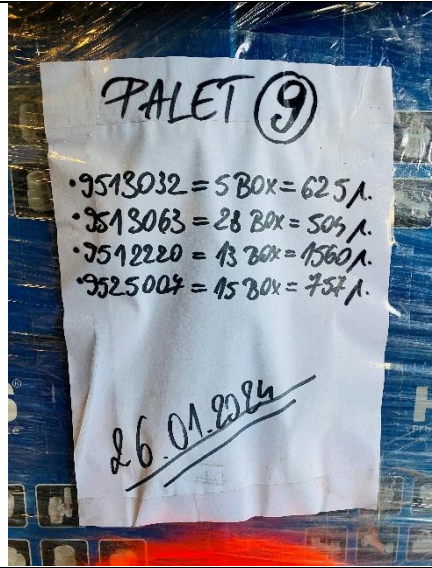 PALET 9
•9513032 = 5 BOX = 625 л.
•9513063 = 28 BOX = 504 л.
•9512220 = 13 BOX = 1560 л.
•9525007 = 15 BOX = 757 л.
26.01.2024